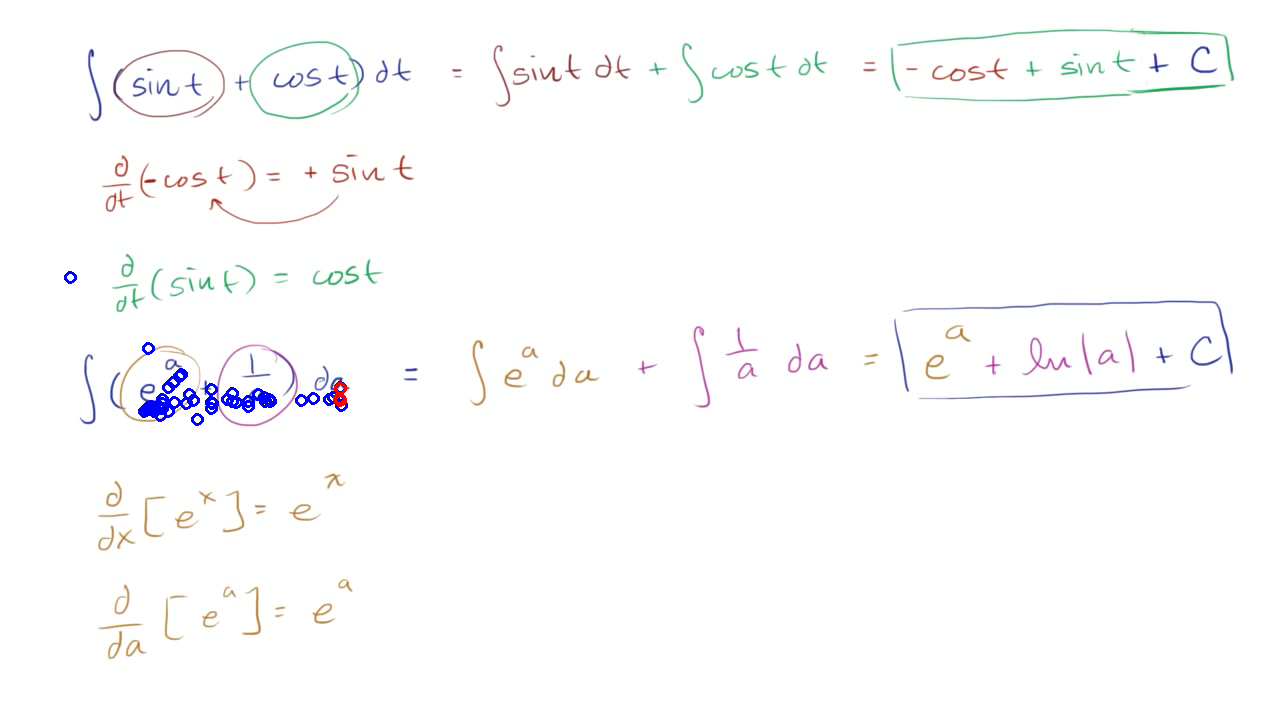 ∫(sin t + cos t) dt = ∫sin t dt + ∫cos t dt = - cos t + sin t + C
d/dt (-cos t) = + sin t
d/dt (sin t) = cos t
∫(e^a + 1/ ) da = ∫ e^a da + ∫ 1/a da = e^a + ln|a| + C
d/dx [e^x] = e^x
d/da [e^a] = e^a